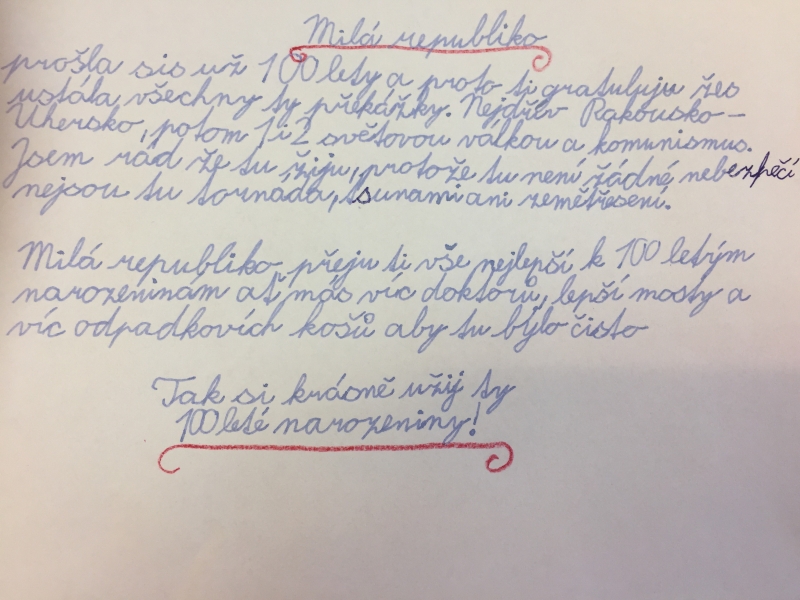 Milá republiko
prošla sis už 100 lety a proto ti gratuluju žes
ustála všechny ty překážky. Nejdřív Rakousko-
Uhersko, potom 1 i 2 světovou válkou a komunismus.
Jsem rád že tu žiju, protože tu není žádné nebezpečí
nejsou tu tornáda, tsunami ani zemětřesení.
Milá republiko přeju ti vše nejlepší k 100 letým
narozeninám ať más víc doktorů, lepší mosty a
víc odpadkovích košů aby tu bylo čisto
Tak si krásně užij ty
100 leté narozeniny!